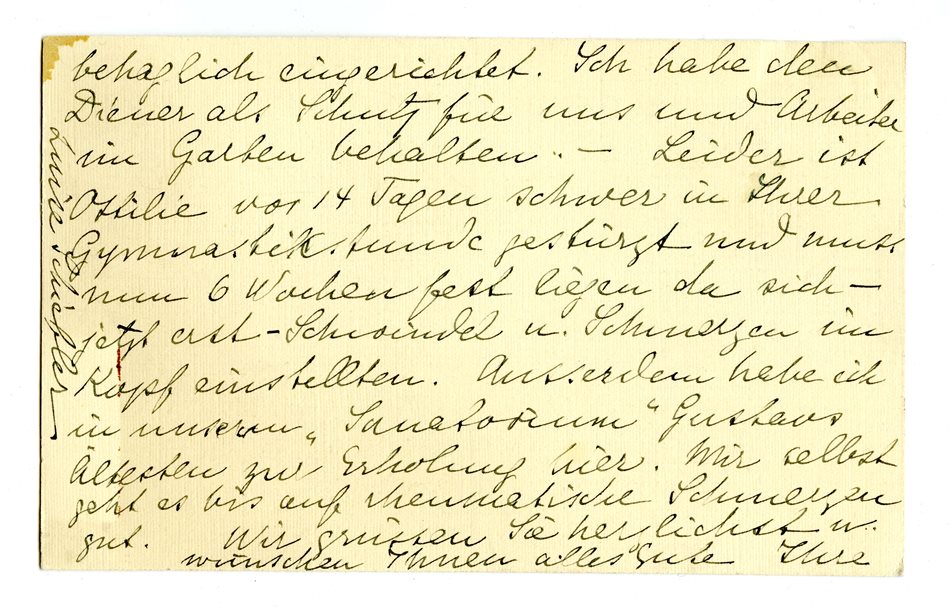 behaglich eingerichtet. Ich habe den
Diener als Schutz für uns und Arbeiter
im Garten behalten. – Leider ist
Ottilie vor 14 Tagen schwer in Ihrer
Gymnastikstunde gestürzt und muss
nun 6 Wochen fest liegen da sich –
jetzt erst – Schwindel u. Schmerzen im
Kopf einstellten. Ausserdem habe ich
in unserem „Sanatorium“ Gustavs
Ältesten zur Erholung hier. Mir selbst
geht es bis auf rheumatische Schmerzen
gut. Wir grüssen Sie herzlichst u.
wünschen Ihnen alles Gute Ihre
Luise Schiefler